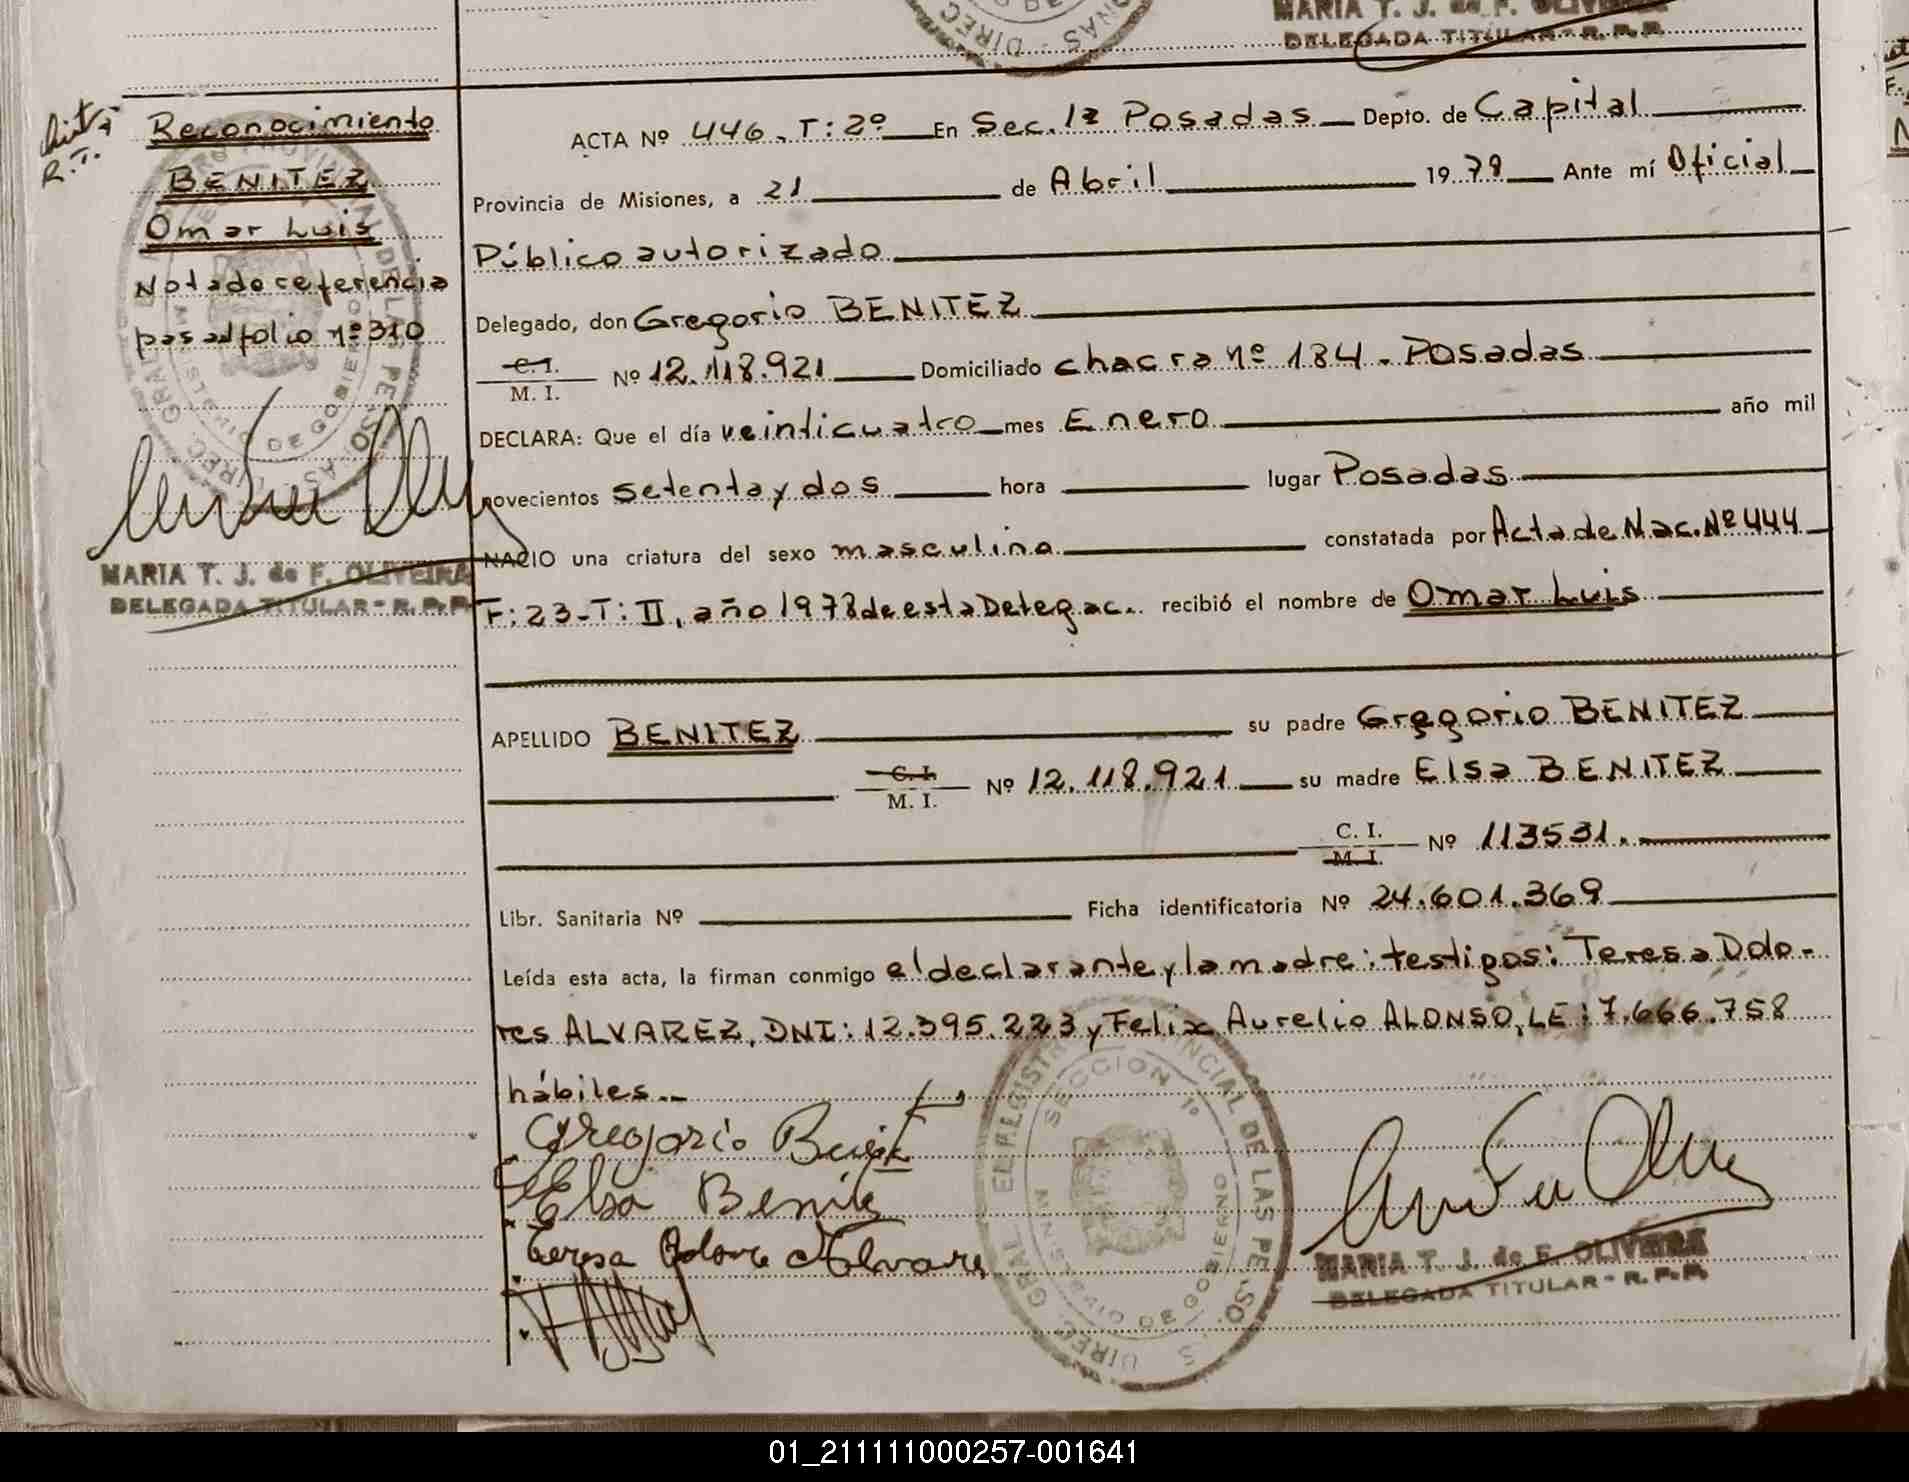 MARIA T. J. de F. OLIVEIRA
DELEGADA TITULAR - R. P. P.
Reconocimiento
BENITEZ
Omar Luis
Nota de referencia
pasa al folio nº 310
MARIA T. J. de F. OLIVEIRA
DELEGADA TITULAR - R. P. P.
ACTA Nº 446. T: 2º En Sec. 1ª Posadas Depto. de Capital
Provincia de Misiones, a 21 de Abril 1979 Ante mí Oficial
Público autorizado
Delegado, don Gregorio BENITEZ
C. I.
M. I. Nº 12.118.921 Domiciliado chacra nº 184. Posadas
DECLARA: Que el día veinticuatro mes Enero año mil
novecientos setenta y dos hora lugar Posadas
NACIO una criatura del sexo masculino constatada por Acta de Nac. Nº 444
F: 23-T: II, año 1978 de esta Delegac.. recibió el nombre de Omar Luis
APELLIDO BENITEZ su padre Gregorio BENITEZ
C. I.
M. I. Nº 12.118.921 su madre Elsa BENITEZ
C. I.
M. I. Nº 113531.
Libr. Sanitaria Nº Ficha identificatoria Nº 24.601.369
Leída esta acta, la firman conmigo el declarante y la madre: testigos: Teresa Dolo-
res ALVAREZ, DNI: 12.395.223 y Felix Aurelio ALONSO, LE: 7.666.758
hábiles..
Gregorio Benitez
Elsa Benitez
Teresa Dolore Alvares
SECCION 1º
MARIA T. J. de F. OLIVEIRA
DELEGADA TITULAR - R. P. P.
01_211111000257-001641